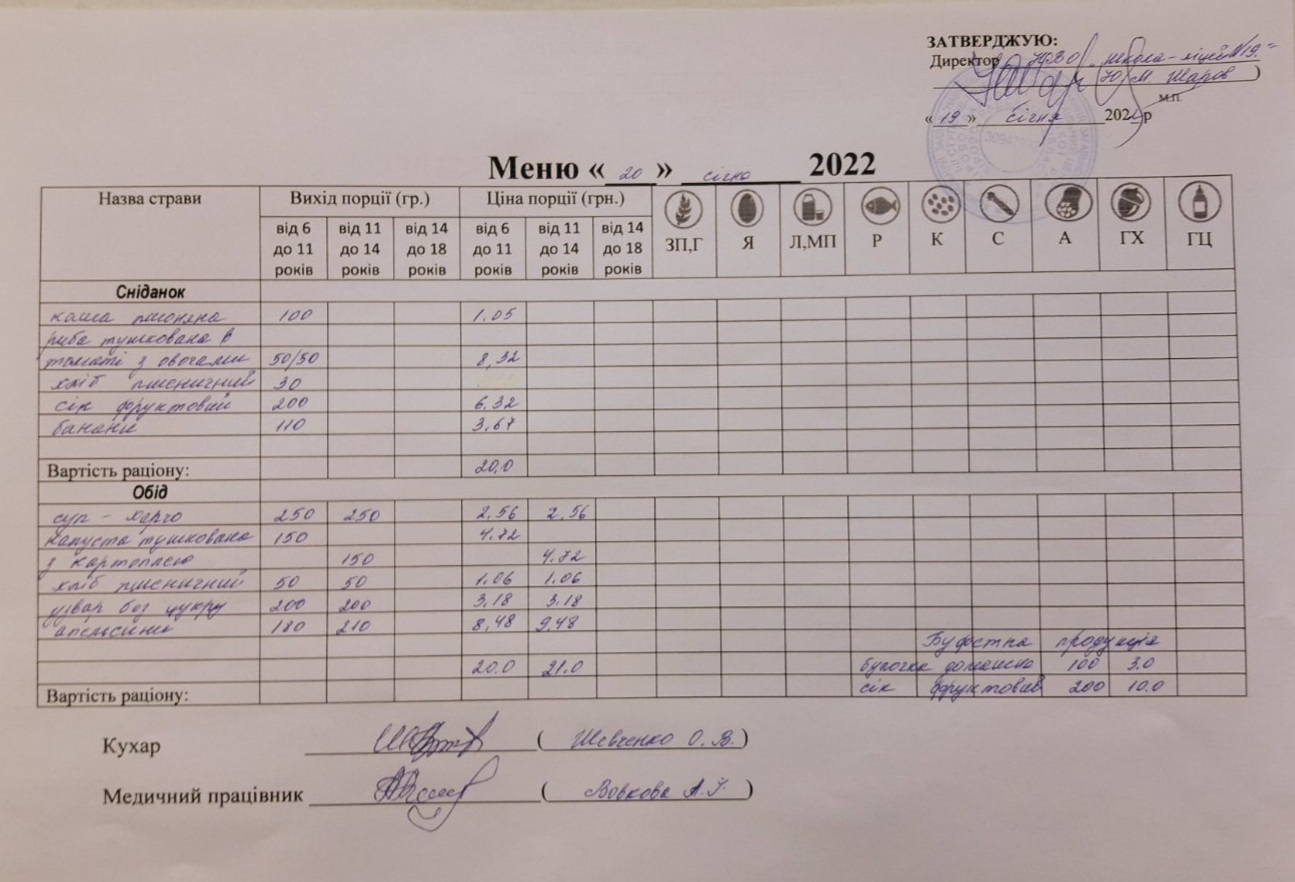 ЗАТВЕРДЖУЮ:
Директор НВО "школа-ліцей №19"
(Ю. М. Шаров)
М.П.
«19» січня 2022 р
Меню «20» січня 2022
Назва страви Вихід порції (гр.) Ціна порції (грн.)
від 6 до 11 років від 11 до 14 років від 14 до 18 років від 6 до 11 років від 11 до 14 років від 14 до 18 років ЗП,Г Я Л,МП Р К С А ГХ ГЦ
Сніданок
каша пшоняна 100 1.05
риба тушкована в
томаті з овочами 50/50 8,32
хліб пшеничний 30
сік фруктовий 200 6,32
банани 110 3,67
Вартість раціону: 20,0
Обід
суп - харчо 250 250 2.56 2.56
капуста тушкована 150 4.72
з картоплею 150 4.72
хліб пшеничний 50 50 1.06 1.06
узвар без цукру 200 200 3,18 3.18
апельсини 180 210 8,48 9,48
Буфетна продукція
20.0 21.0 булочка домашня 100 3.0
Вартість раціону: сік фруктовий 200 10.0
Кухар (Шевченко О. В.)
Медичний працівник (Вовкова А. )